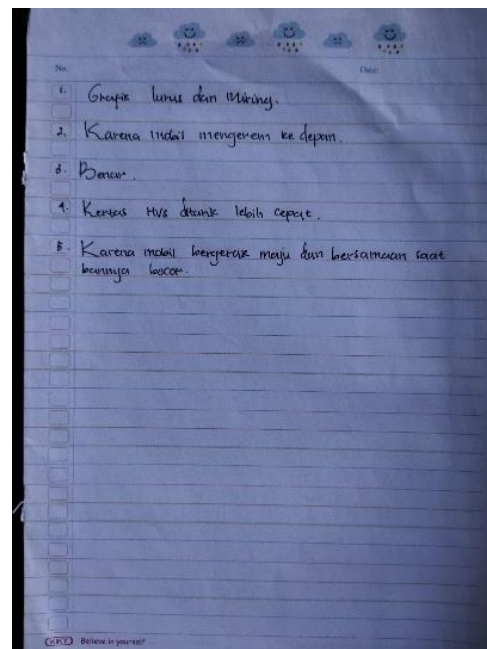 No:
Date:
1. Grafik lurus dan miring.
2. Karena mobil mengerem ke depan.
3. Benar.
4. Kertas HVS ditarik lebih cepat.
5. Karena mobil bergerak maju dan bersamaan saat
bannya bocor.
KIKY Believe in yourself